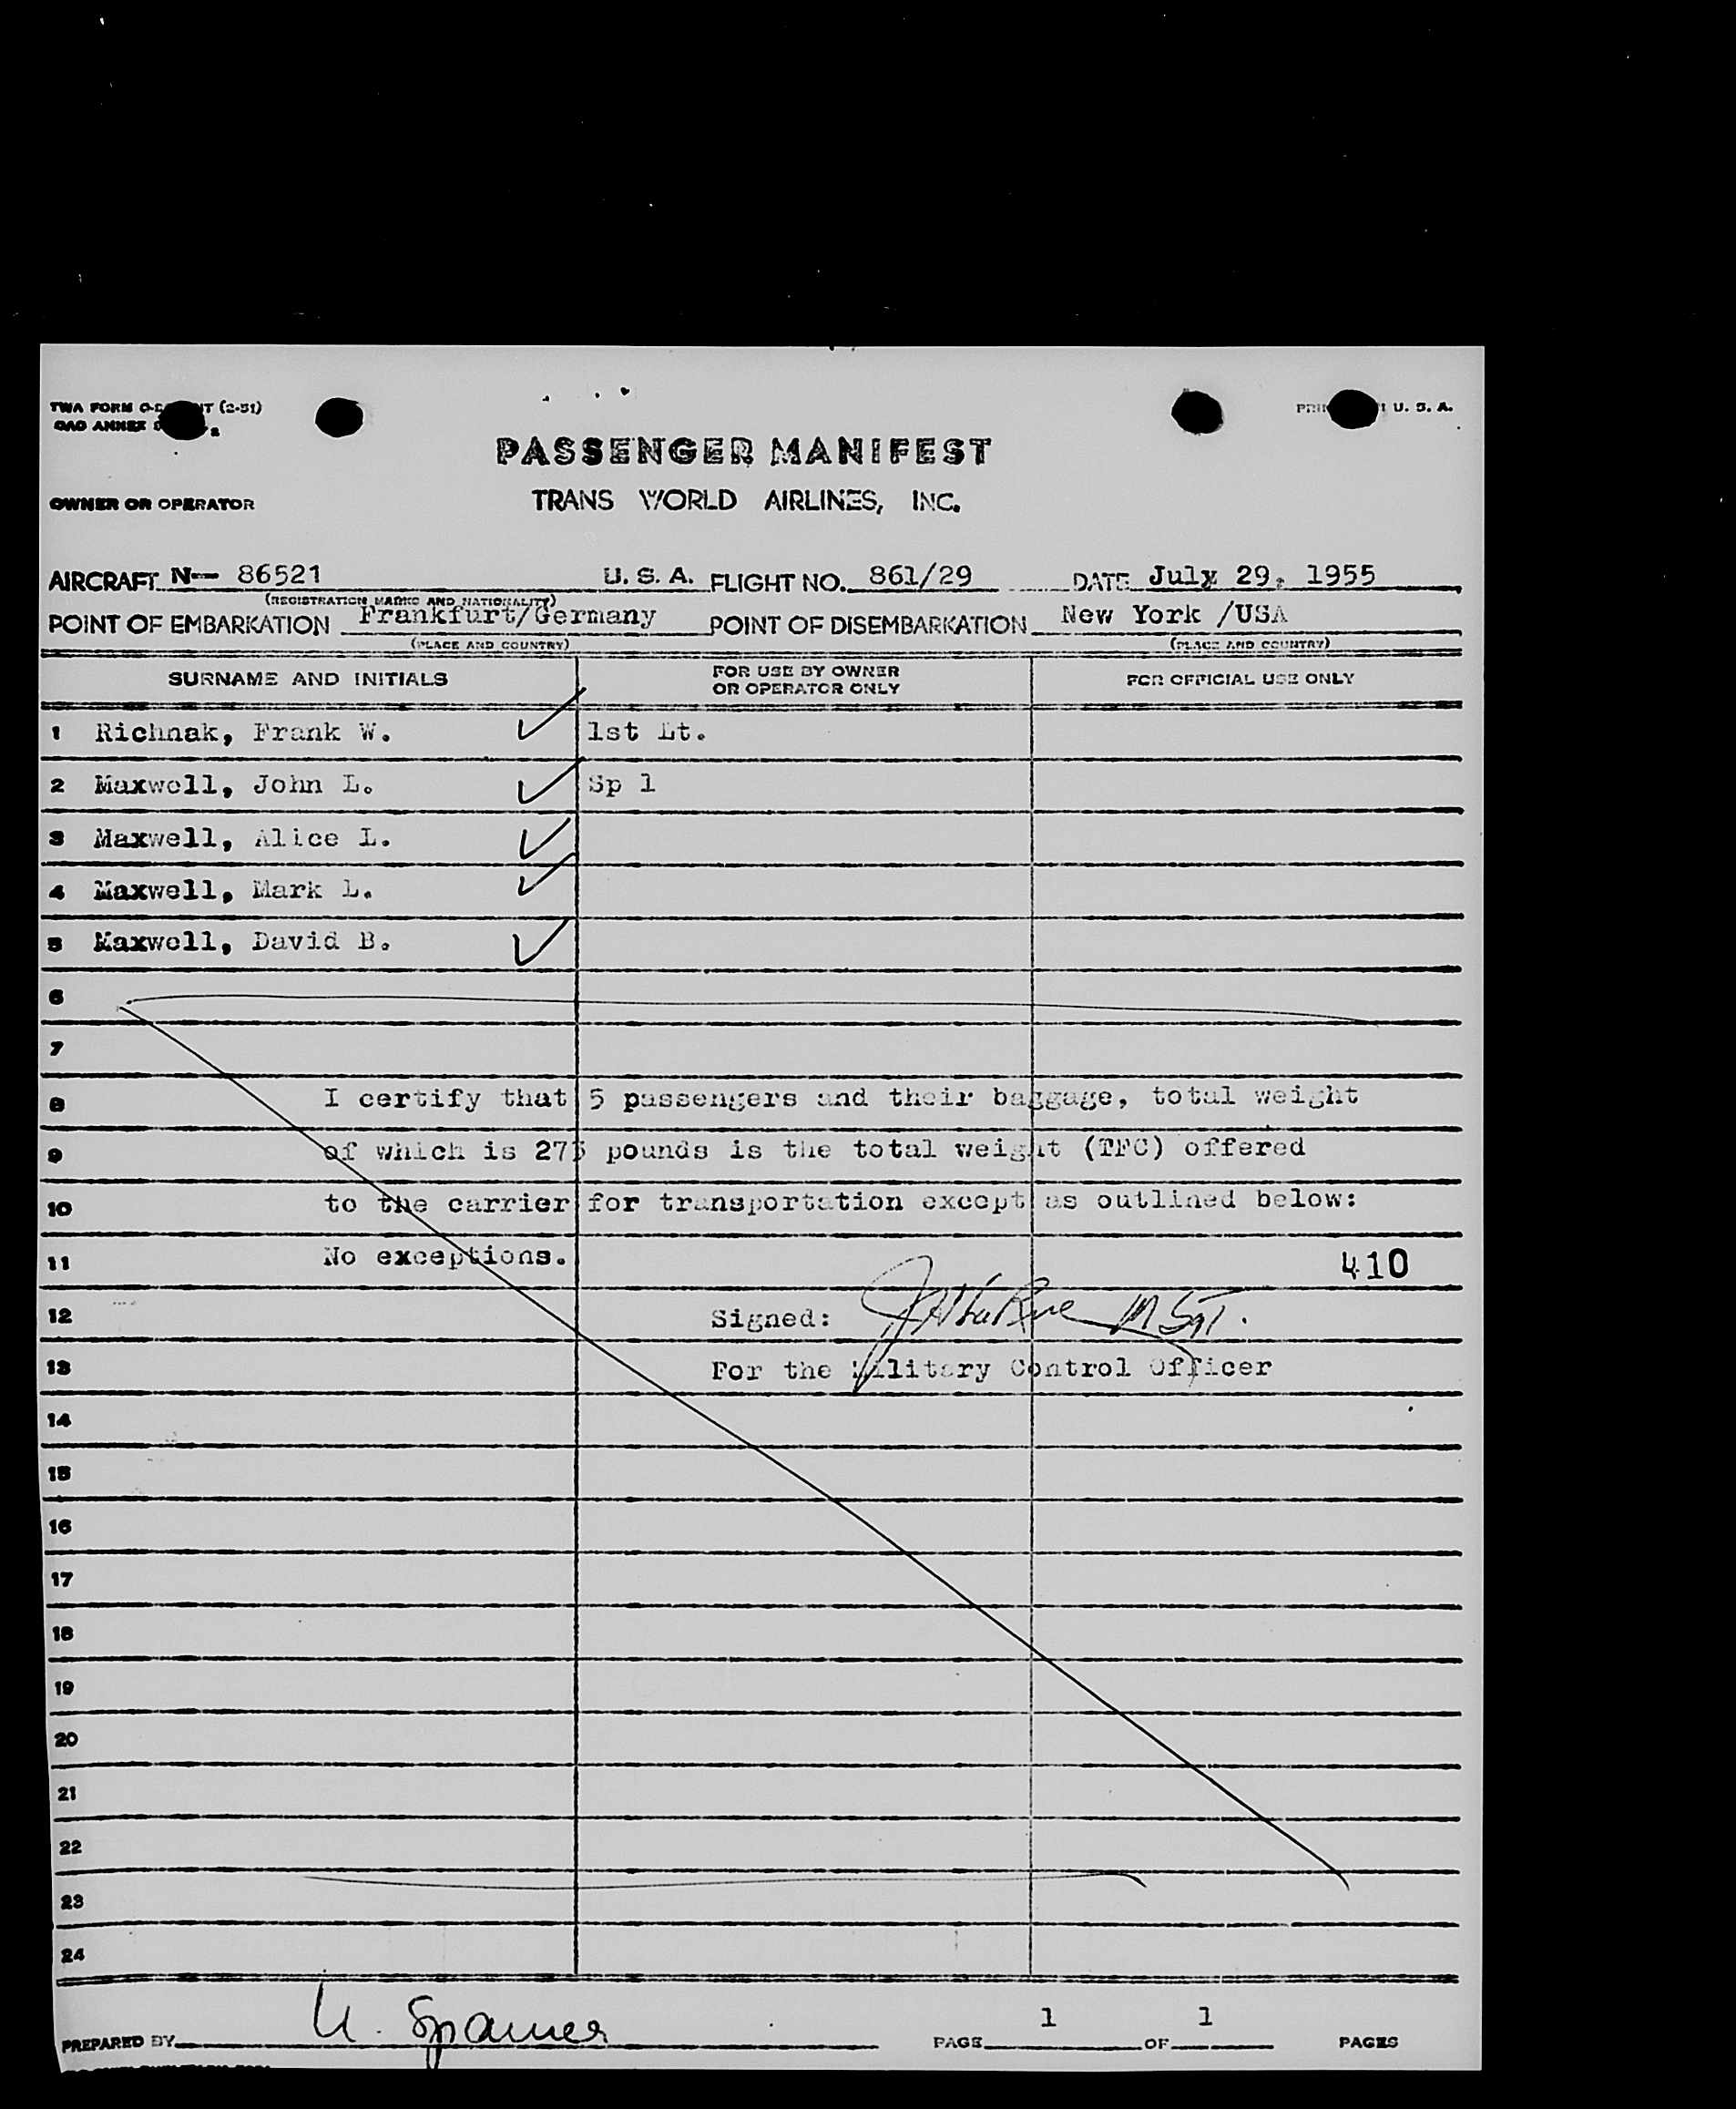 TWA FORM
(2-51)
U. S. A.
PASSENGER MANIFEST
OWNER OR OPERATOR TRANS WORLD AIRLINES, INC.
AIRCRAFT N-- 86521 U. S. A. FLIGHT NO. 861/29 DATE July 29, 1955
(REGISTRATION MARKS AND NATIONALITY)
POINT OF EMBARKATION Frankfurt/Germany POINT OF DISEMBARKATION New York /USA
(PLACE AND COUNTRY) (PLACE AND COUNTRY)
SURNAME AND INITIALS FOR USE BY OWNER OR OPERATOR ONLY FOR OFFICIAL USE ONLY
1 Richnak, Frank W. 1st Lt.
2 Maxwell, John L. Sp 1
3 Maxwell, Alice L.
4 Maxwell, Mark L.
5 Maxwell, David B.
6
7
8 I certify that 5 passengers and their baggage, total weight
9 of which is 275 pounds is the total weight (TFC) offered
10 to the carrier for transportation except as outlined below:
11 No exceptions. 410
12 Signed: M Sgt.
13 For the Military Control Officer
14
15
16
17
18
19
20
21
22
23
24
PREPARED BY PAGE 1 OF 1 PAGES